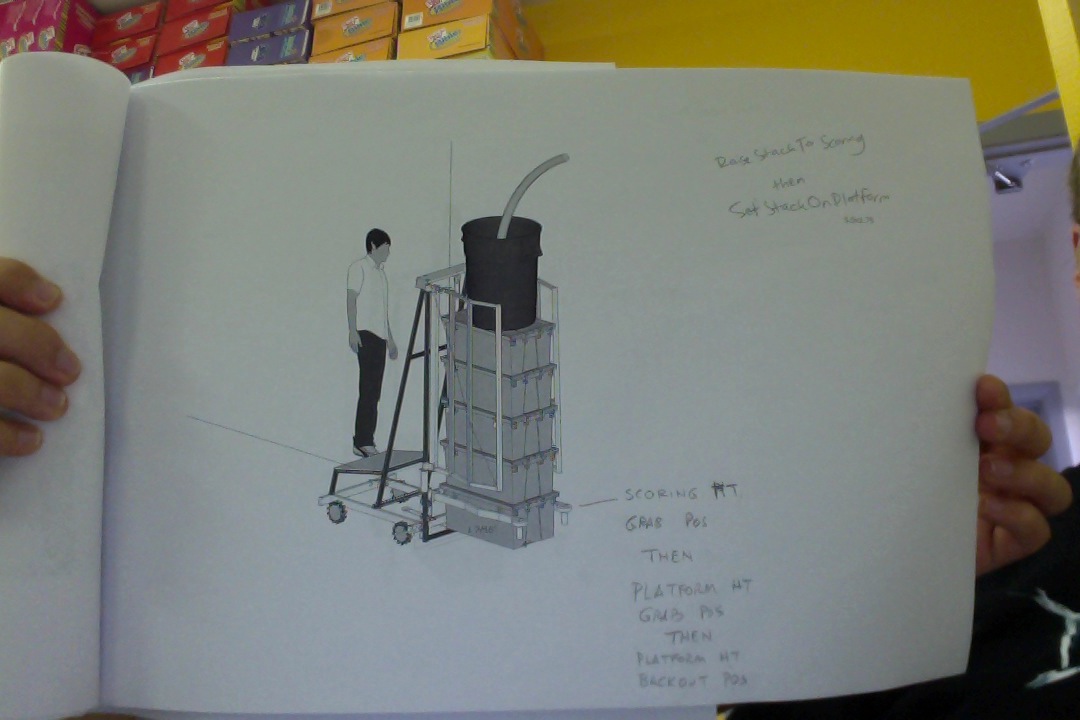 Raise Stack To Scoring
then
Set Stack On Platform
SCORING HT
GRAB POS
THEN
PLATFORM HT
GRAB POS
THEN
PLATFORM HT
BACKOUT POS